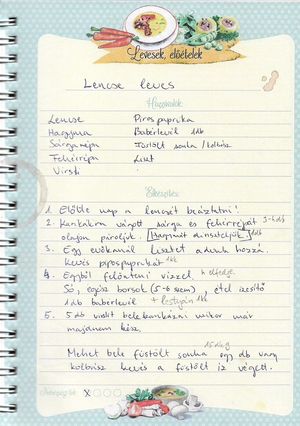 Levesek, előételek
Lencse leves
Hozzávalók
Lencse Pirospaprika
Hagyma Babérlevél 1db
Sárgarépa Füstölt sonka / kolbász
Fehérrépa Liszt
Virsli
Elkészítés
1. Előtte nap a lencsét beáztatni!
2. Karikákra vágott sárga és fehérrépát 3-4 db
olajon pároljuk. Hagymát dinszteljük 1db
3. Egy evőkanál lisztet adunk hozzá
kevés pirospaprikát 1kk
4. Egyből felönteni vízzel
Só, egész borsok (5-6 szem), étel ízesítő
1db babérlevél + lestyán 1kk
5. 5 db virslit belekarikázni mikor már
majdnem kész.
Mehet bele füstölt sonka egy db vagy
kolbász kevés a füstölt íz végett.